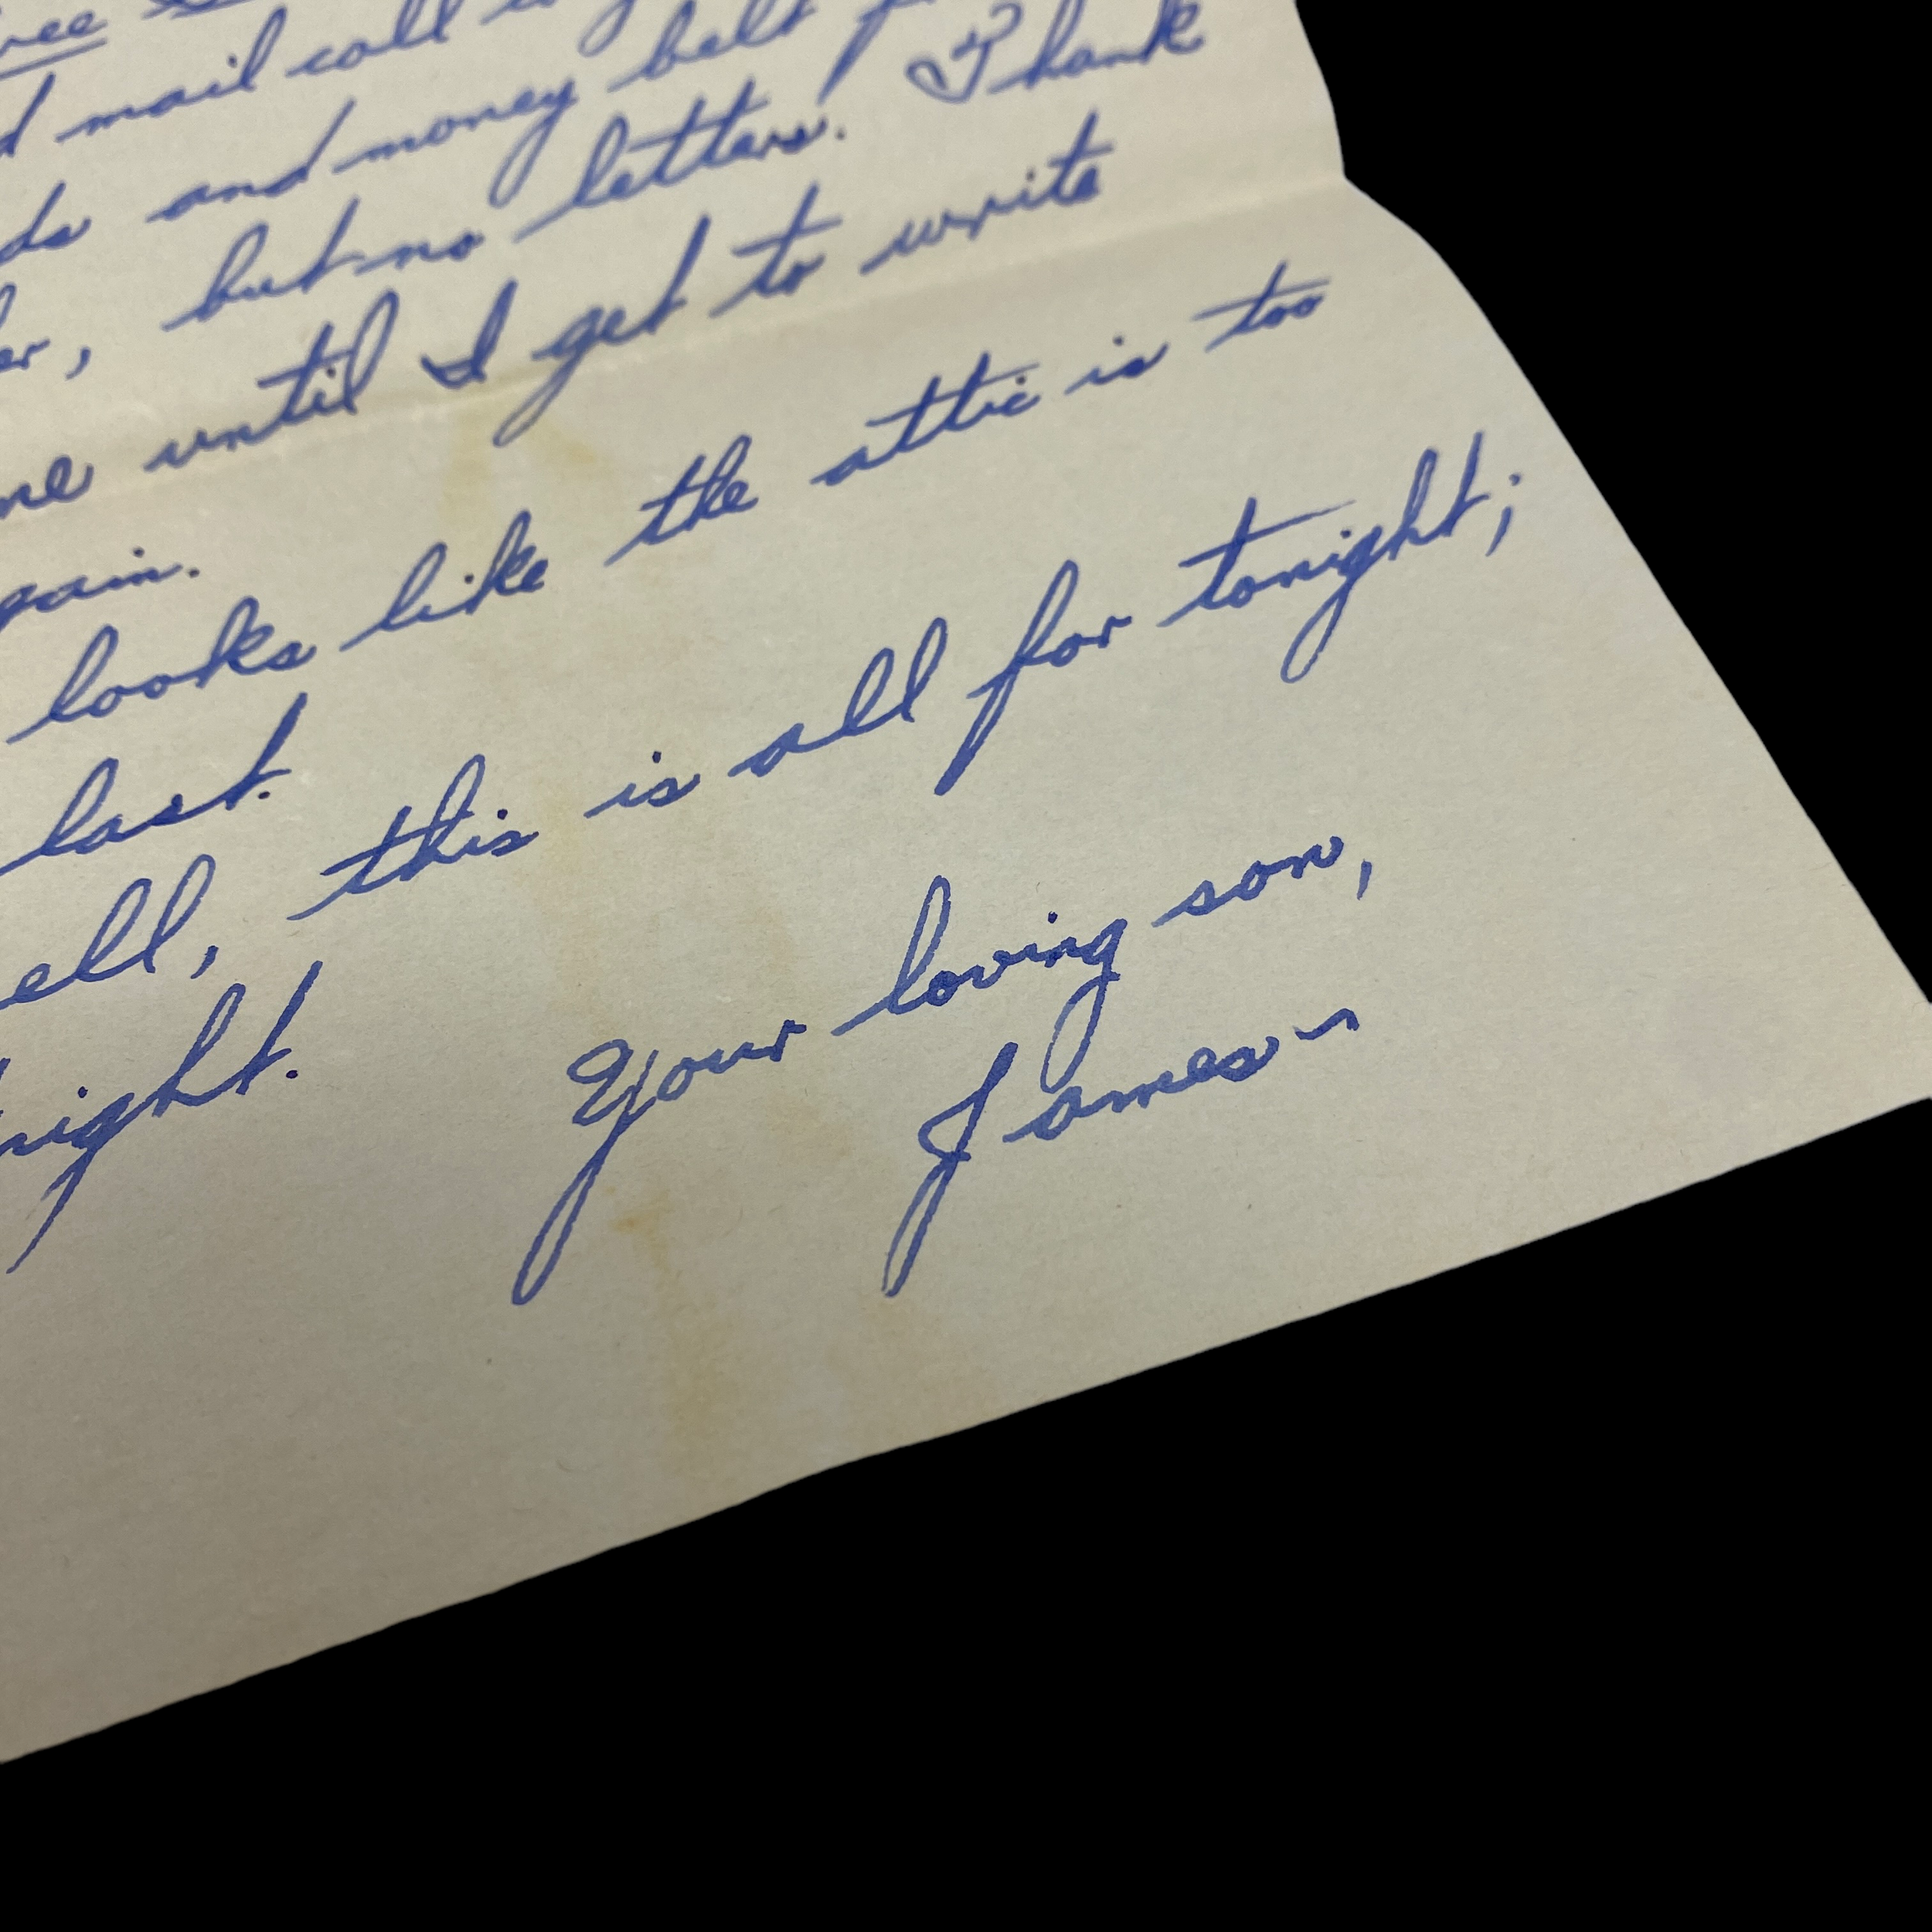 mail call
and money belt
but no letters. Thank
me until I get to write
gain.
looks like the attic is too
last.
ell, this is all for tonight;
night.
Your loving son,
James~